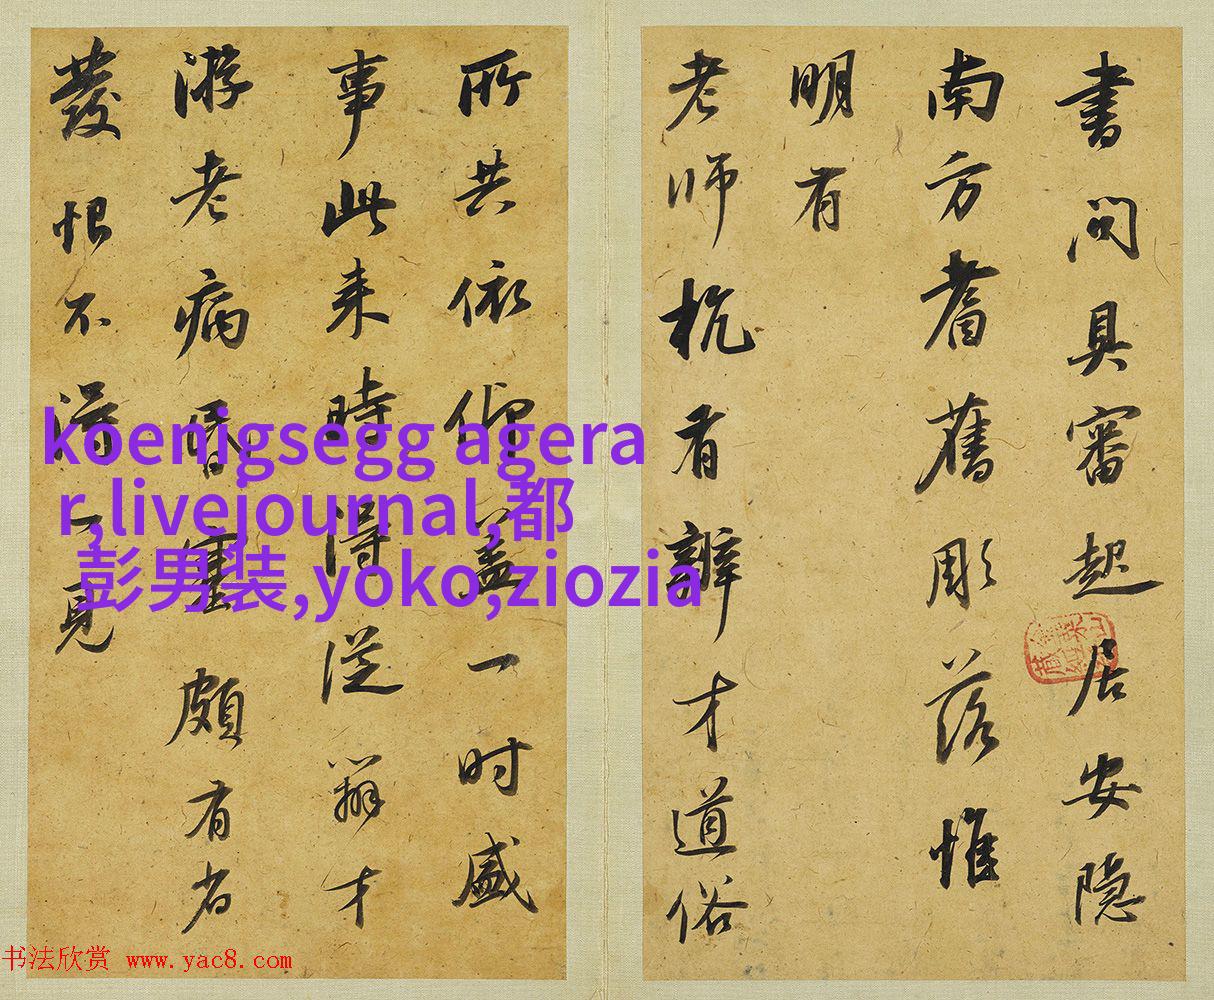 書問具審起居安隱
南方耆舊彫落惟
明有
老師杭有辯才道俗
所共依仰蓋一时盛
事此来時得從辯才
游老病昏塞頗有省
發恨不得一見
koenigsegg agera
r,livejournal,都
彭男装,yoko,ziozia
书法欣赏 www.yac8.com